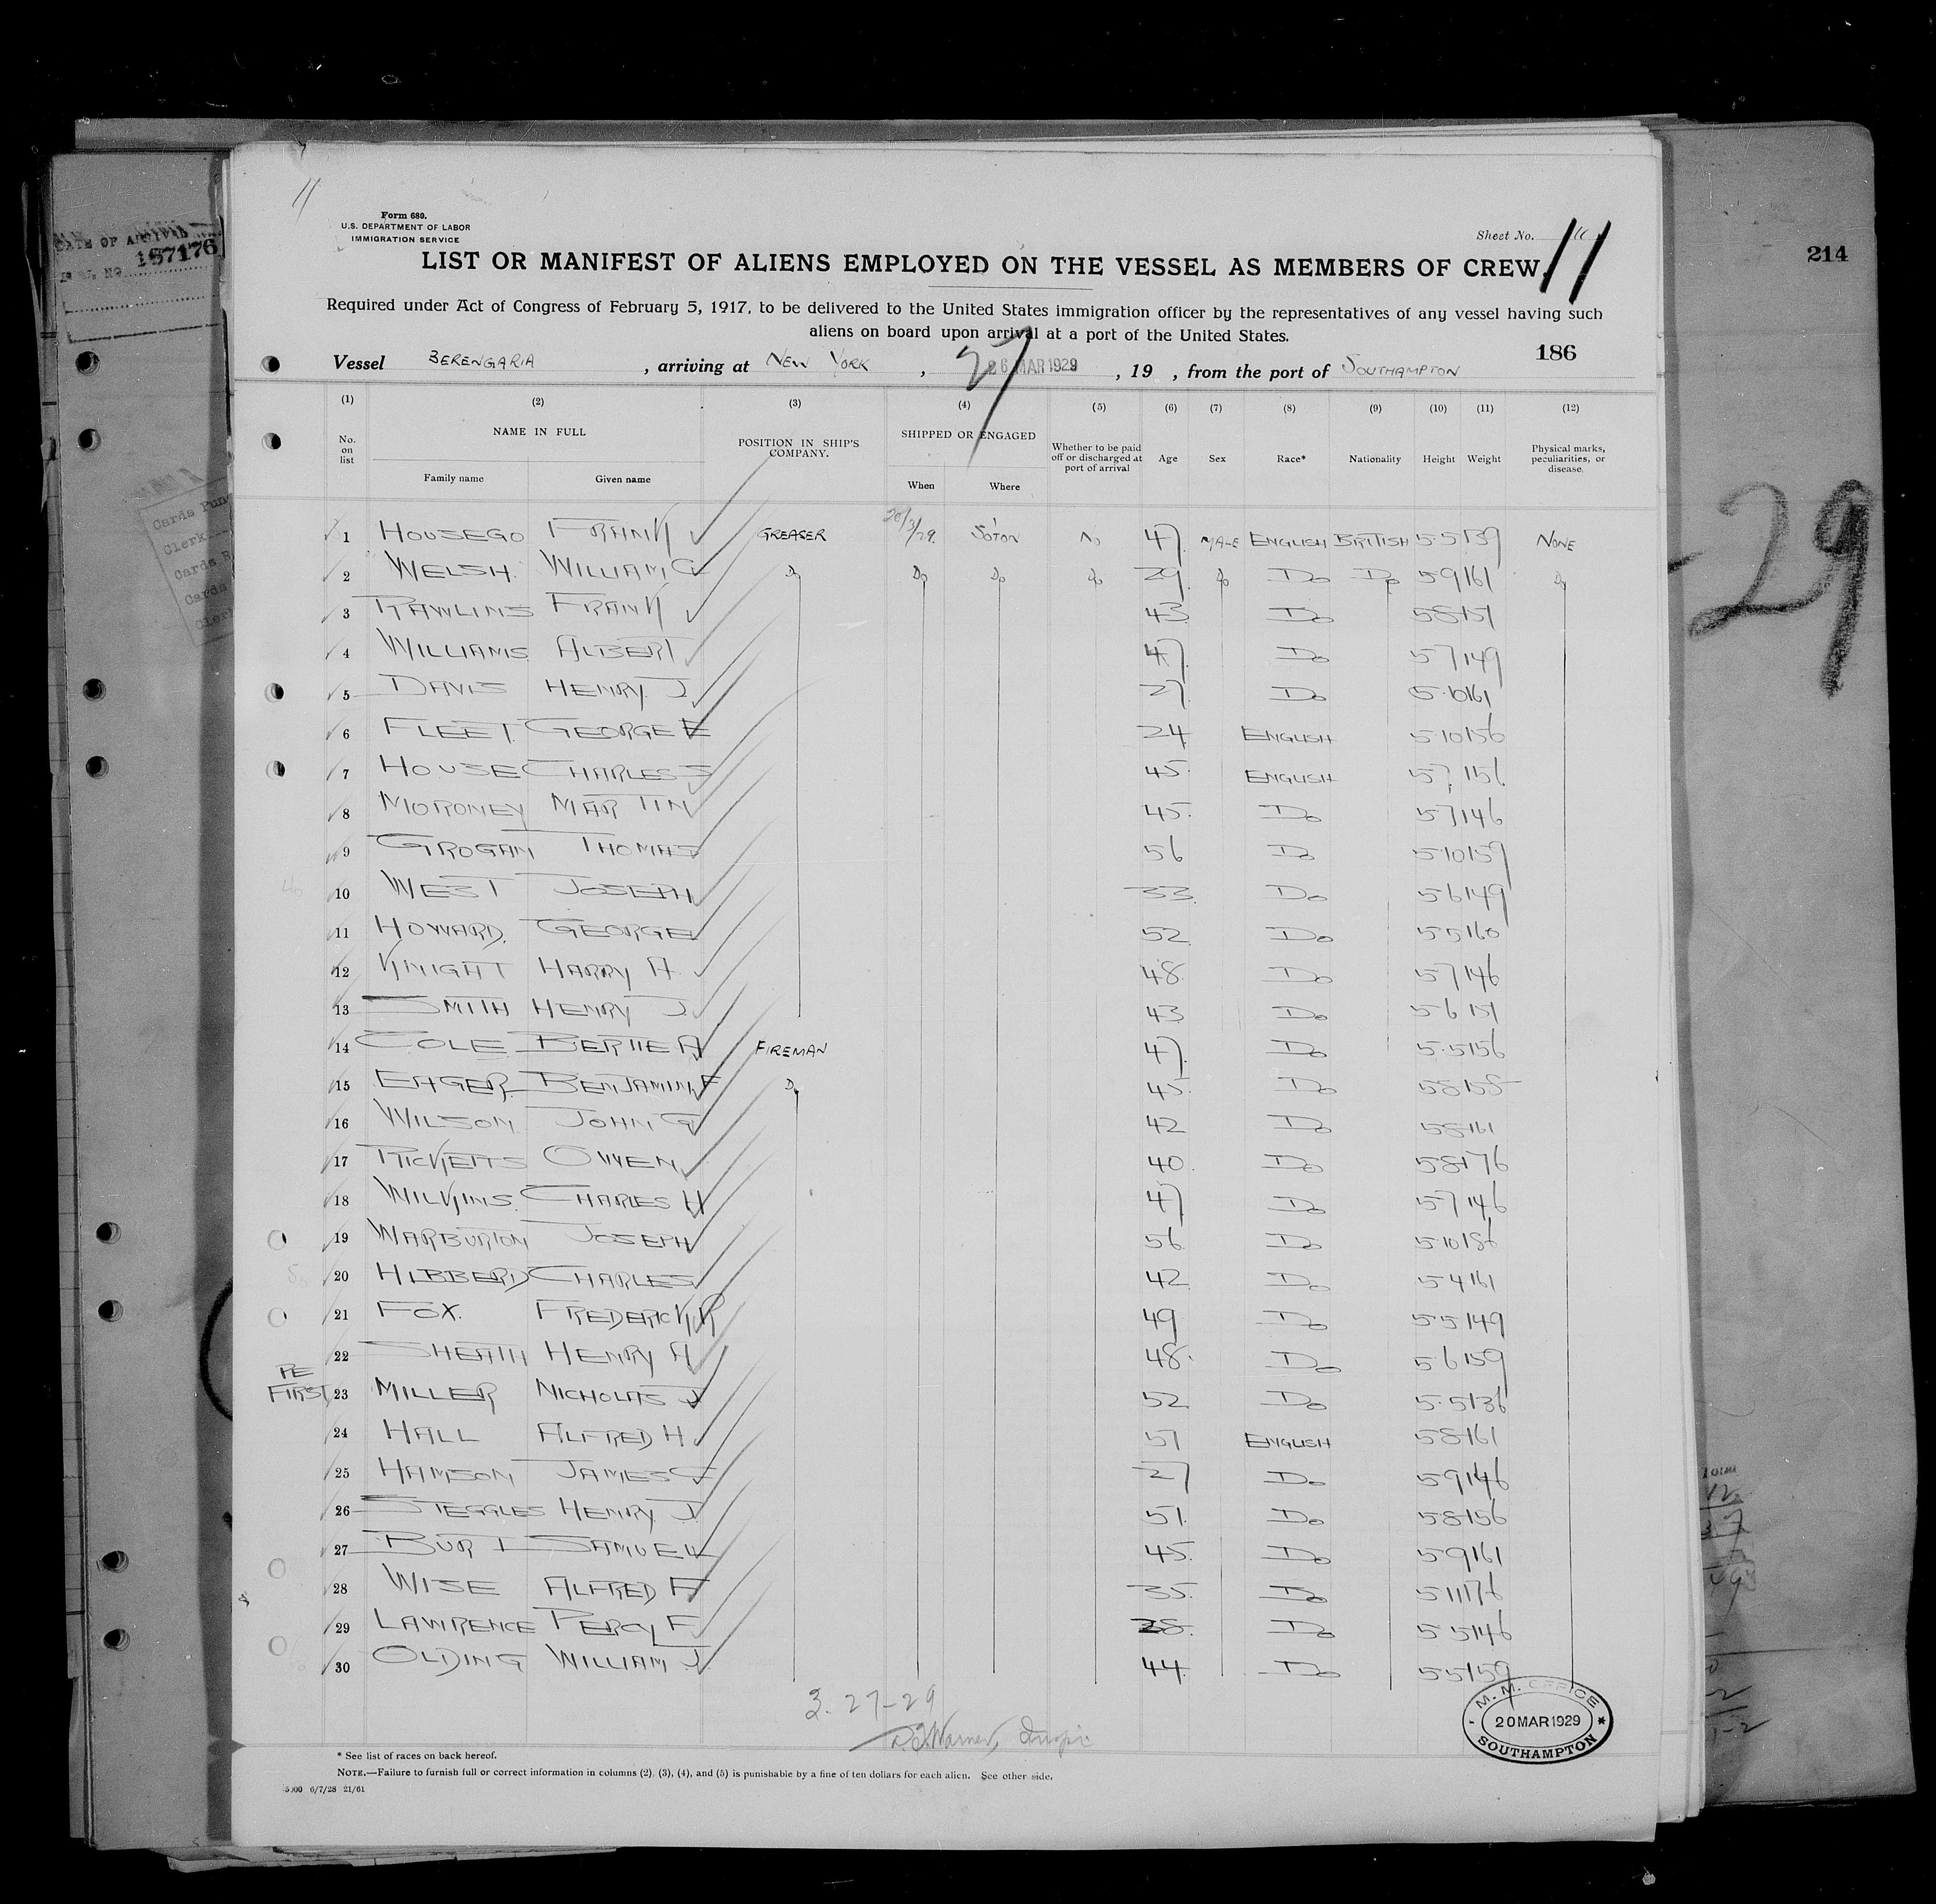 11
Form 680.
U.S. DEPARTMENT OF LABOR
IMMIGRATION SERVICE
Sheet No. 11
11
LIST OR MANIFEST OF ALIENS EMPLOYED ON THE VESSEL AS MEMBERS OF CREW
Required under Act of Congress of February 5, 1917, to be delivered to the United States immigration officer by the representatives of any vessel having such
aliens on board upon arrival at a port of the United States.
186
Vessel BERENGARIA , arriving at NEW YORK , 27 26 MAR 1929 , 19 , from the port of SOUTHAMPTON
(1) (2) (3) (4) (5) (6) (7) (8) (9) (10) (11) (12)
No. on list NAME IN FULL Family name Given name POSITION IN SHIP'S COMPANY. SHIPPED OR ENGAGED When Where Whether to be paid off or discharged at port of arrival Age Sex Race* Nationality Height Weight Physical marks, peculiarities, or disease.
1 HOUSEGO FRANK GREASER 20/3/29. SOTON No 47 MALE ENGLISH BRITISH 5 5 139 NONE
2 WELSH WILLIAM G Do Do Do do 29 do Do Do 5 9 161 Do
3 RAWLINS FRANK 43 Do 5 8 151
4 WILLIAMS ALBERT 47 Do 5 7 149
5 DAVIS HENRY J 27 Do 5 10 161
6 FLEET GEORGE E 24 ENGLISH 5 10 156
7 HOUSE CHARLES S 45 ENGLISH 5 7 156
8 MORONEY MARTIN 45 Do 5 7 146
9 GROGAN THOMAS 56 Do 5 10 159
10 WEST JOSEPH 33 Do 5 6 149
11 HOWARD GEORGE 52 Do 5 5 160
12 KNIGHT HARRY A 48 Do 5 7 146
13 SMITH HENRY J 43 Do 5 6 151
14 COLE BERTIE A FIREMAN 47 Do 5 5 156
15 EAGER BENJAMIN F Do 45 Do 5 8 158
16 WILSON JOHN G 42 Do 5 8 161
17 RICKETTS OWEN 40 Do 5 8 176
18 WILKINS CHARLES H 47 Do 5 7 146
19 WARBURTON JOSEPH 56 Do 5 10 186
20 HIBBERD CHARLES 42 Do 5 4 161
21 FOX FREDERICK R 49 Do 5 5 149
22 SHEATH HENRY A 48 Do 5 6 159
PE FIRST 23 MILLER NICHOLAS J 52 Do 5 5 136
24 HALL ALFRED H 51 ENGLISH 5 8 161
25 HAMSON JAMES 27 Do 5 9 146
26 STEGGLES HENRY J 51 Do 5 8 156
27 BURT SAMUEL 45 Do 5 9 161
28 WISE ALFRED F 35 Do 5 11 176
29 LAWRENCE PERCY F 38 Do 5 5 146
30 OLDING WILLIAM J 44 Do 5 5 159
3-27-29
Warner,
M. M. OFFICE
20 MAR 1929
SOUTHAMPTON
* See list of races on back hereof.
NOTE.—Failure to furnish full or correct information in columns (2), (3), (4), and (5) is punishable by a fine of ten dollars for each alien. See other side.
5000 6/7/28 21/61
DATE OF ARRIVAL
167176
214
-29